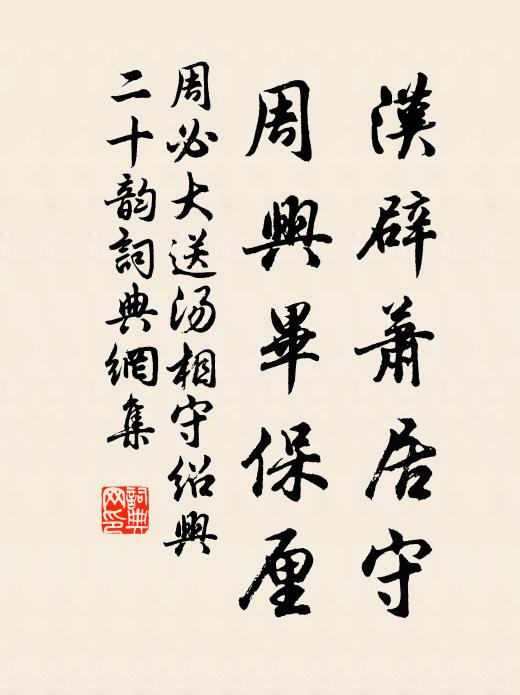 漢辟蕭居守
周興畢保厘
周必大送汤相守绍興
二十韵詞典網集
詞典网印